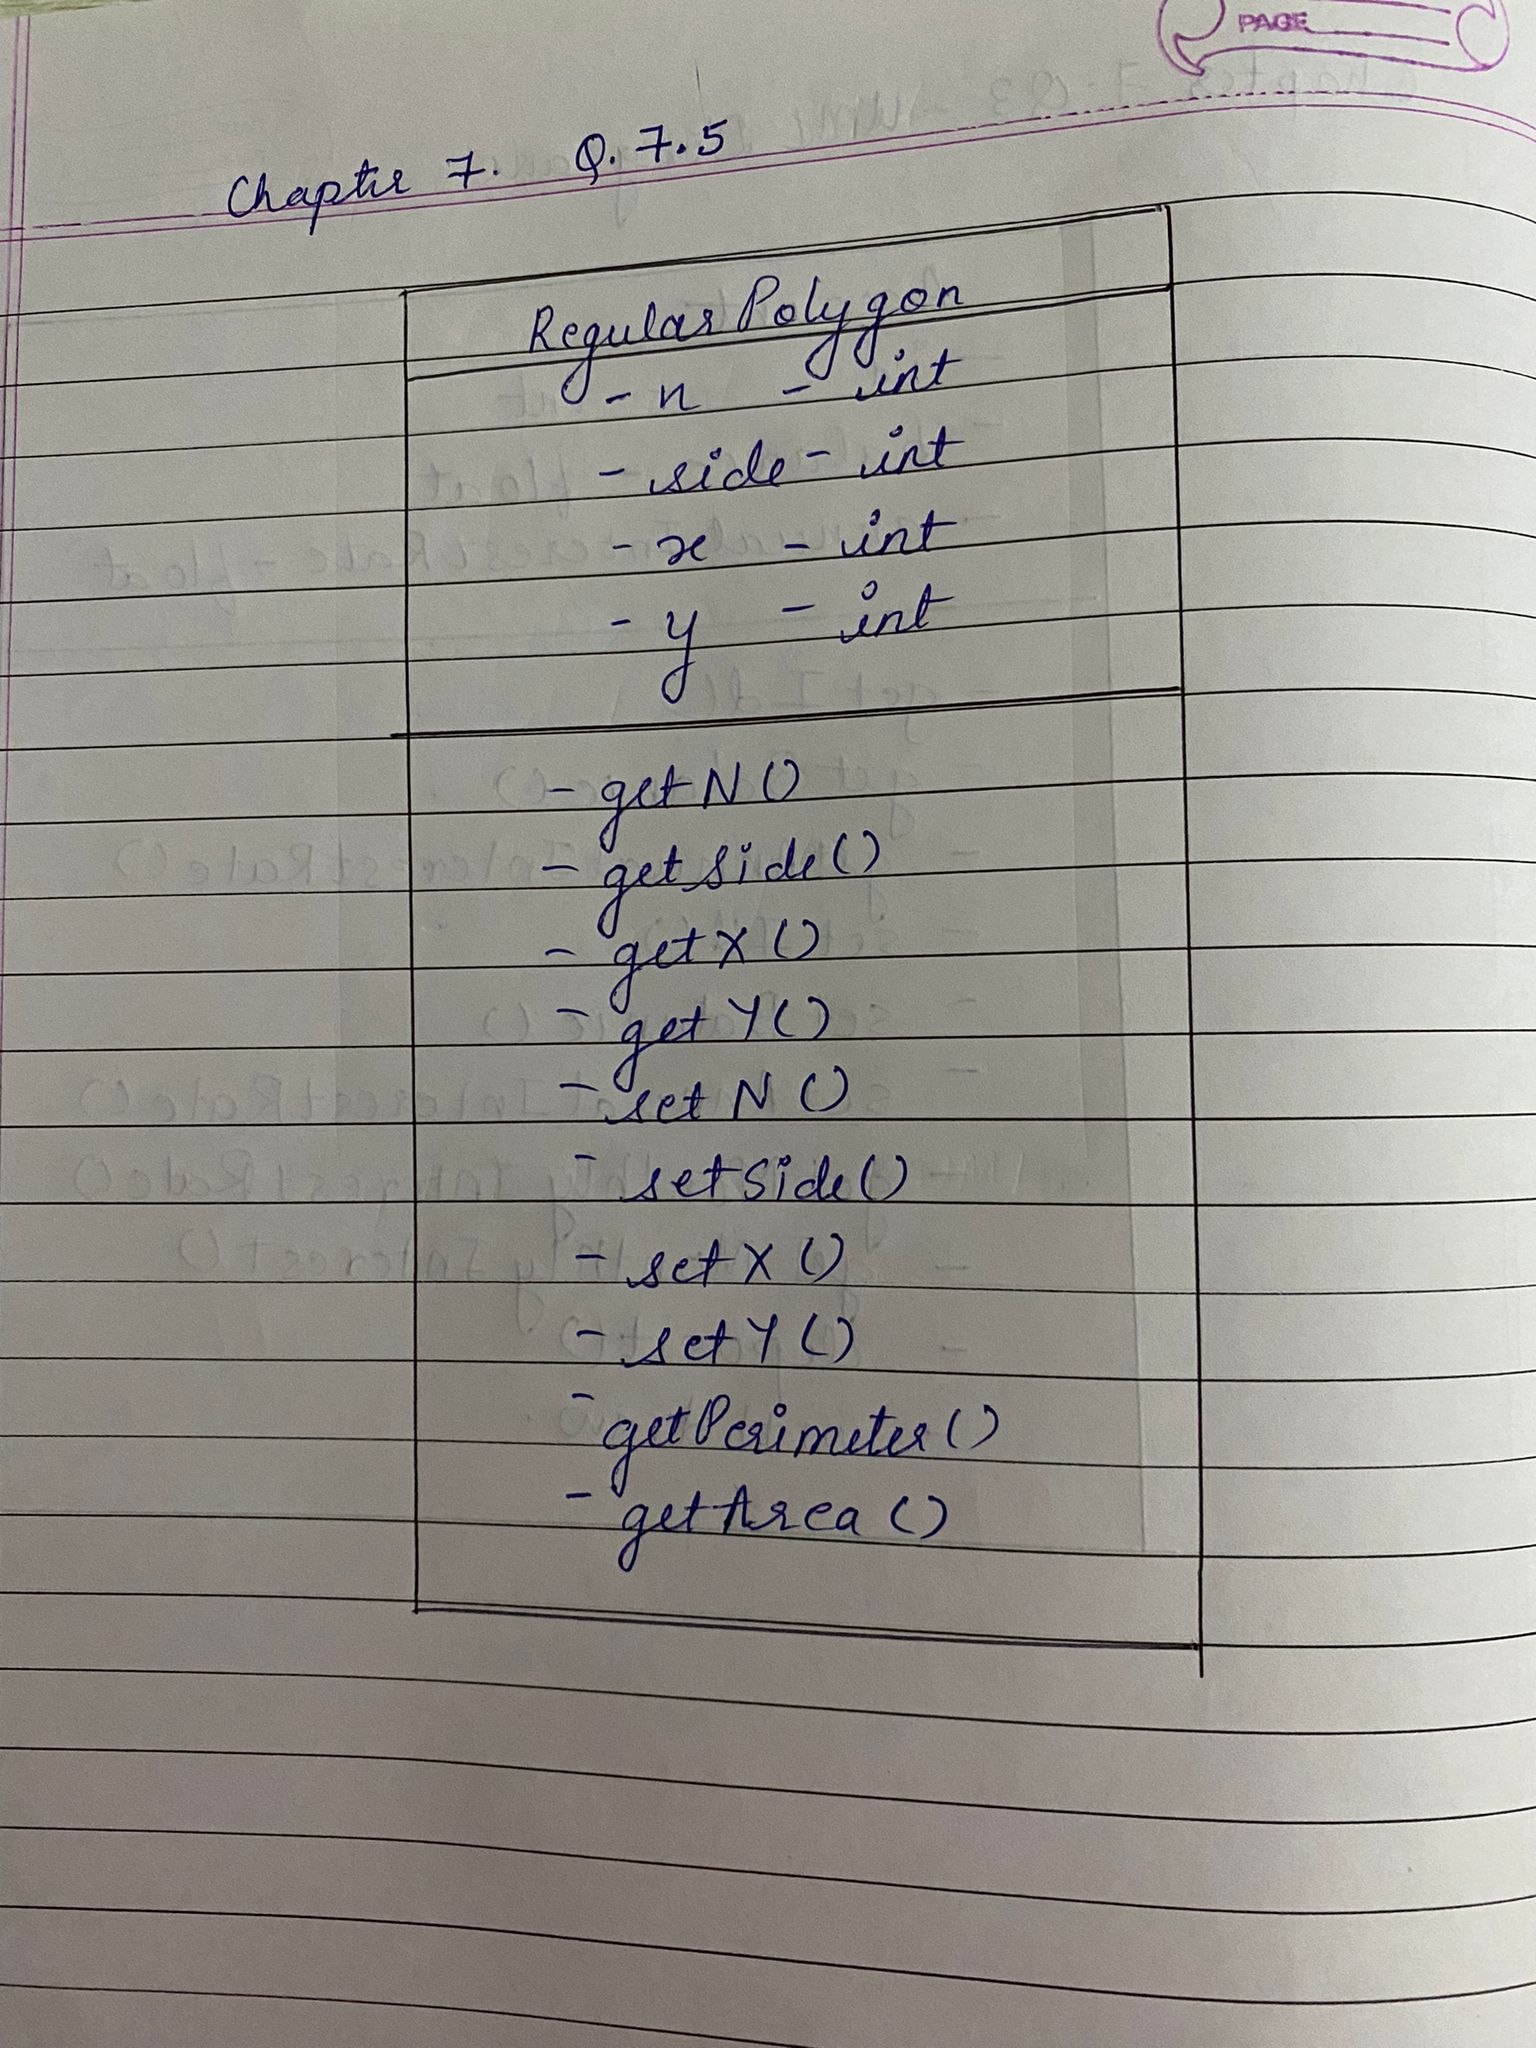 PAGE
Chapter 7. Q. 7.5
RegularPolygon
- n - int
- side - int
- x - int
- y - int
- getN()
- getside()
- getX()
- getY()
- setN()
- setSide()
- setX()
- setY()
- getPerimeter()
- getArea()